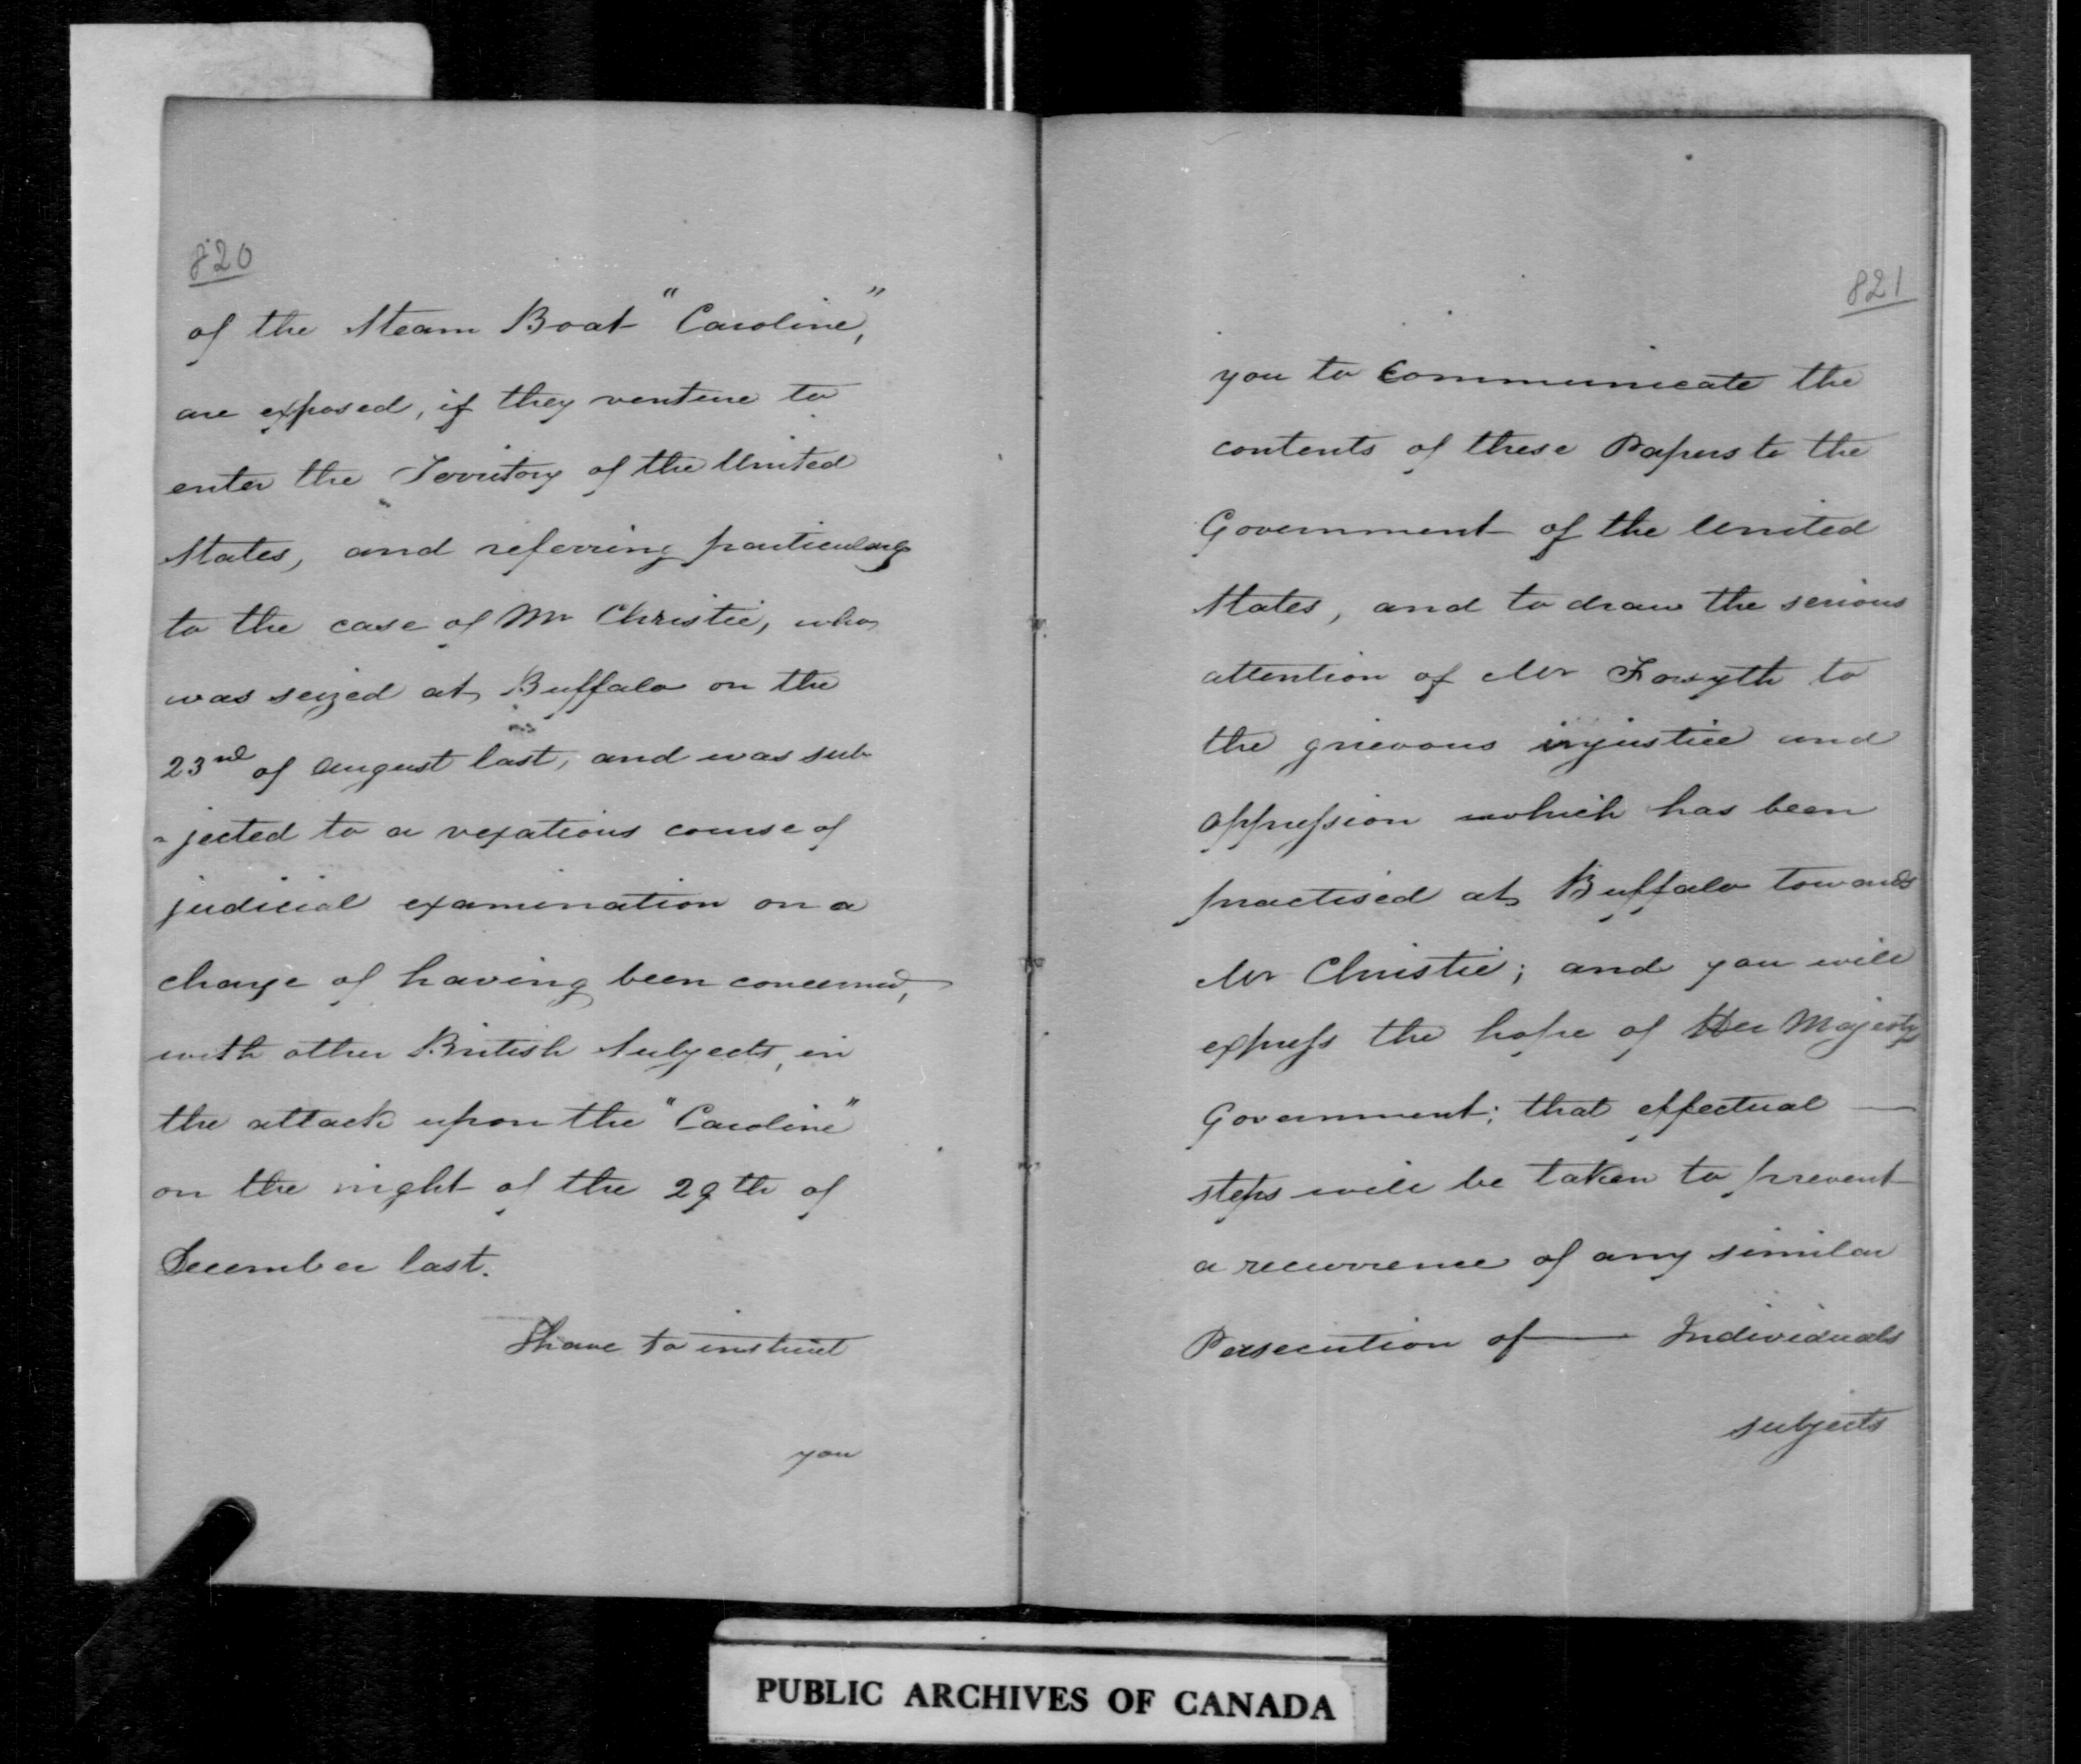 820
of the Steam Boat "Caroline",
are exposed, if they venture to
enter the Territory of the United
States, and referring particularly
to the case of Mr Christie, who
was seized at Buffalo on the
23rd of August last, and was sub-
-jected to a vexatious course of
judicial examination on a
charge of having been concerned,
with other British Subjects, in
the attack upon the "Caroline"
on the night of the 29th of
December last.
I have to instruct
you
821
you to Communicate the
contents of these Papers to the
Government of the United
States, and to draw the serious
attention of Mr Forsyth to
the grievous injustice and
oppression which has been
practised at Buffalo towards
Mr Christie; and you will
express the hope of Her Majesty's
Government; that effectual —
steps will be taken to prevent
a recurrence of any similar
Persecution of — Individuals
subjects
PUBLIC ARCHIVES OF CANADA